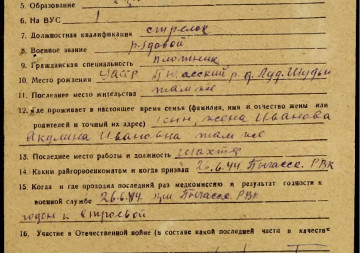 5. Образование
6. На ВУС 1
7. Должностная квалификация стрелок
8. Военное звание рядовой
9. Гражданская специальность плотник
10. Место рождения УАССР
11. Последнее место жительства там же
12. Где проживает в настоящее время семья (фамилия, имя и отчество жены или
родителей и точный их адрес) жена Иванова
Акулина Ивановна там же
13. Последнее место работы и должность шахта
14. Каким райгорвоенкоматом и когда призван 26.6.44 РВК
15. Когда и где проходил последний раз медкомиссию и результат годности к
военной службе 26.6.44 при РВК
годен к строевой
16. Участие в Отечественной войне (в составе какой последней части в качестве